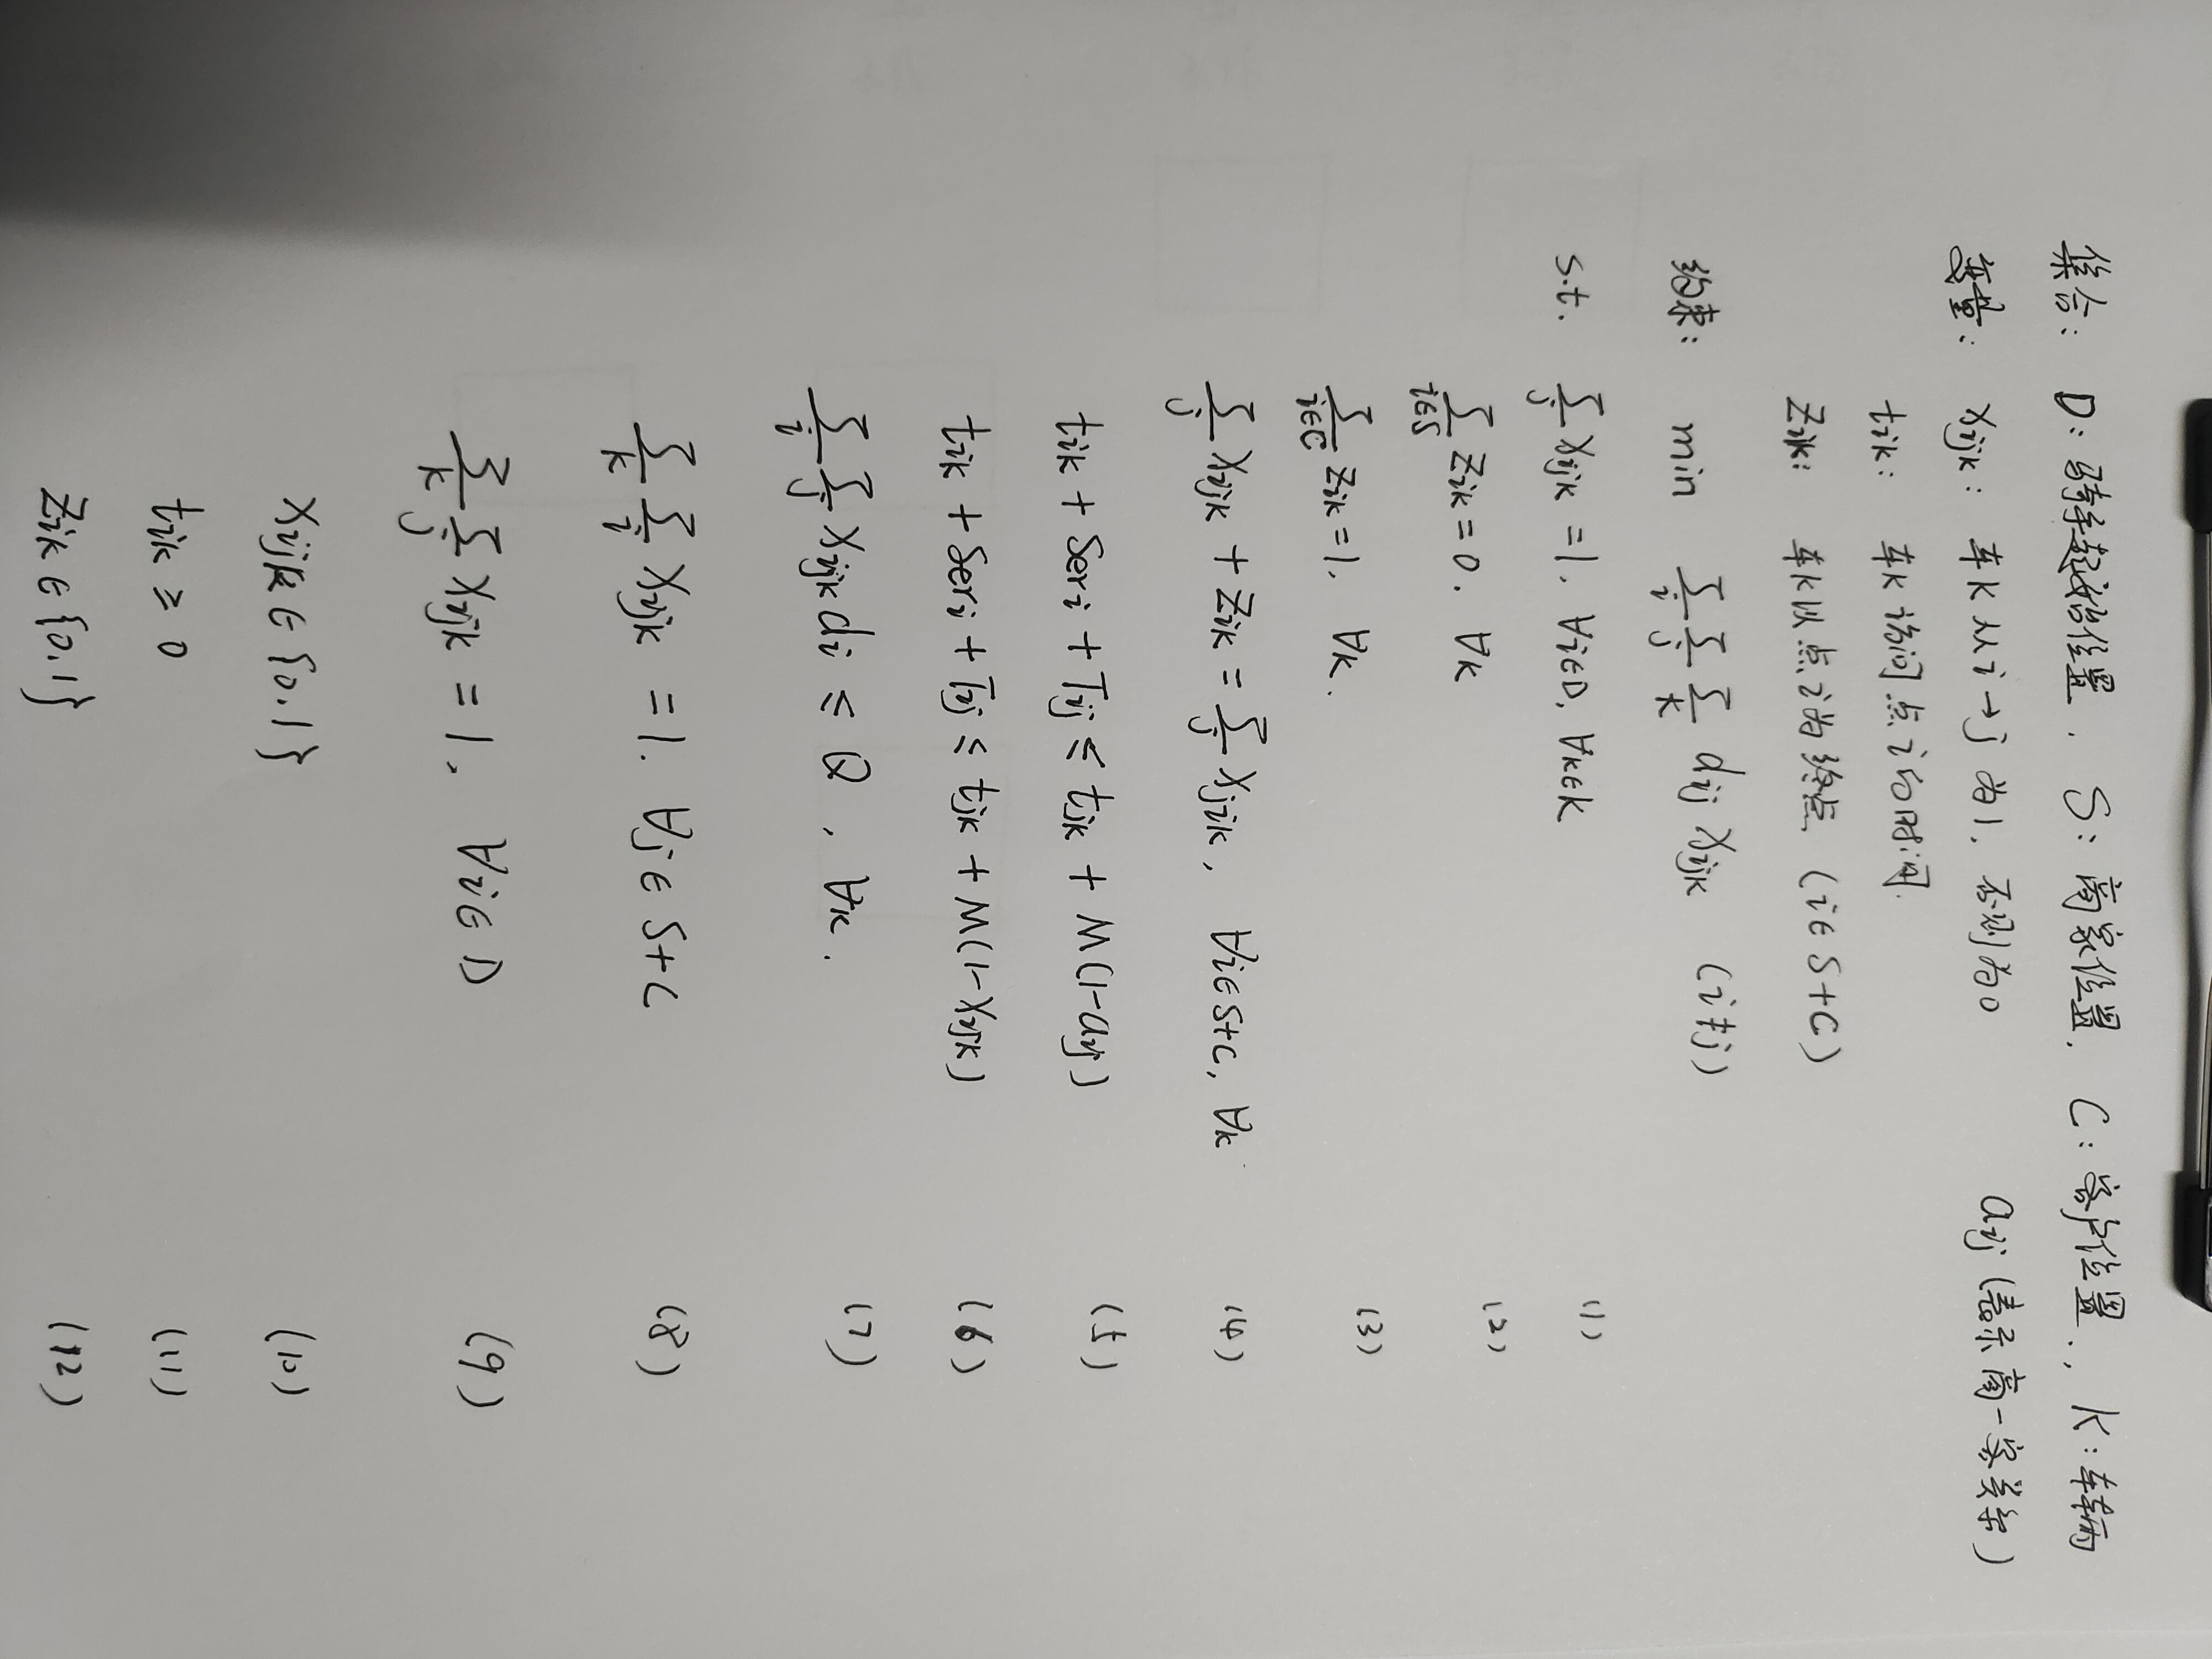 集合: D: 骑手起始位置. S: 商家位置. C: 客户位置., K: 车辆
变量: xijk: 车K从i→j为1, 否则为0 aij (表示商-客关系)
tik: 车K访问点i的时间.
Zik: 车K以点i为终点 (i∈S+C)
约束: min ∑i ∑j ∑k dij xijk (i≠j)
s.t. ∑j xijk =1, ∀i∈D, ∀k∈K (1)
∑i∈S Zik = 0. ∀k (2)
∑i∈C Zik = 1, ∀k. (3)
∑j xijk + Zik = ∑j xjik, ∀i∈S+C, ∀k (4)
tik + Seri + Tij ≤ tjk + M(1-aij) (5)
tik + Seri + Tij ≤ tjk + M(1-xijk) (6)
∑i ∑j xijk di ≤ Q, ∀k. (7)
∑k ∑i xijk = 1. ∀j∈S+C (8)
∑k ∑j xijk = 1, ∀i∈D (9)
xijk ∈ {0,1} (10)
tik ≥ 0 (11)
Zik ∈ {0,1} (12)